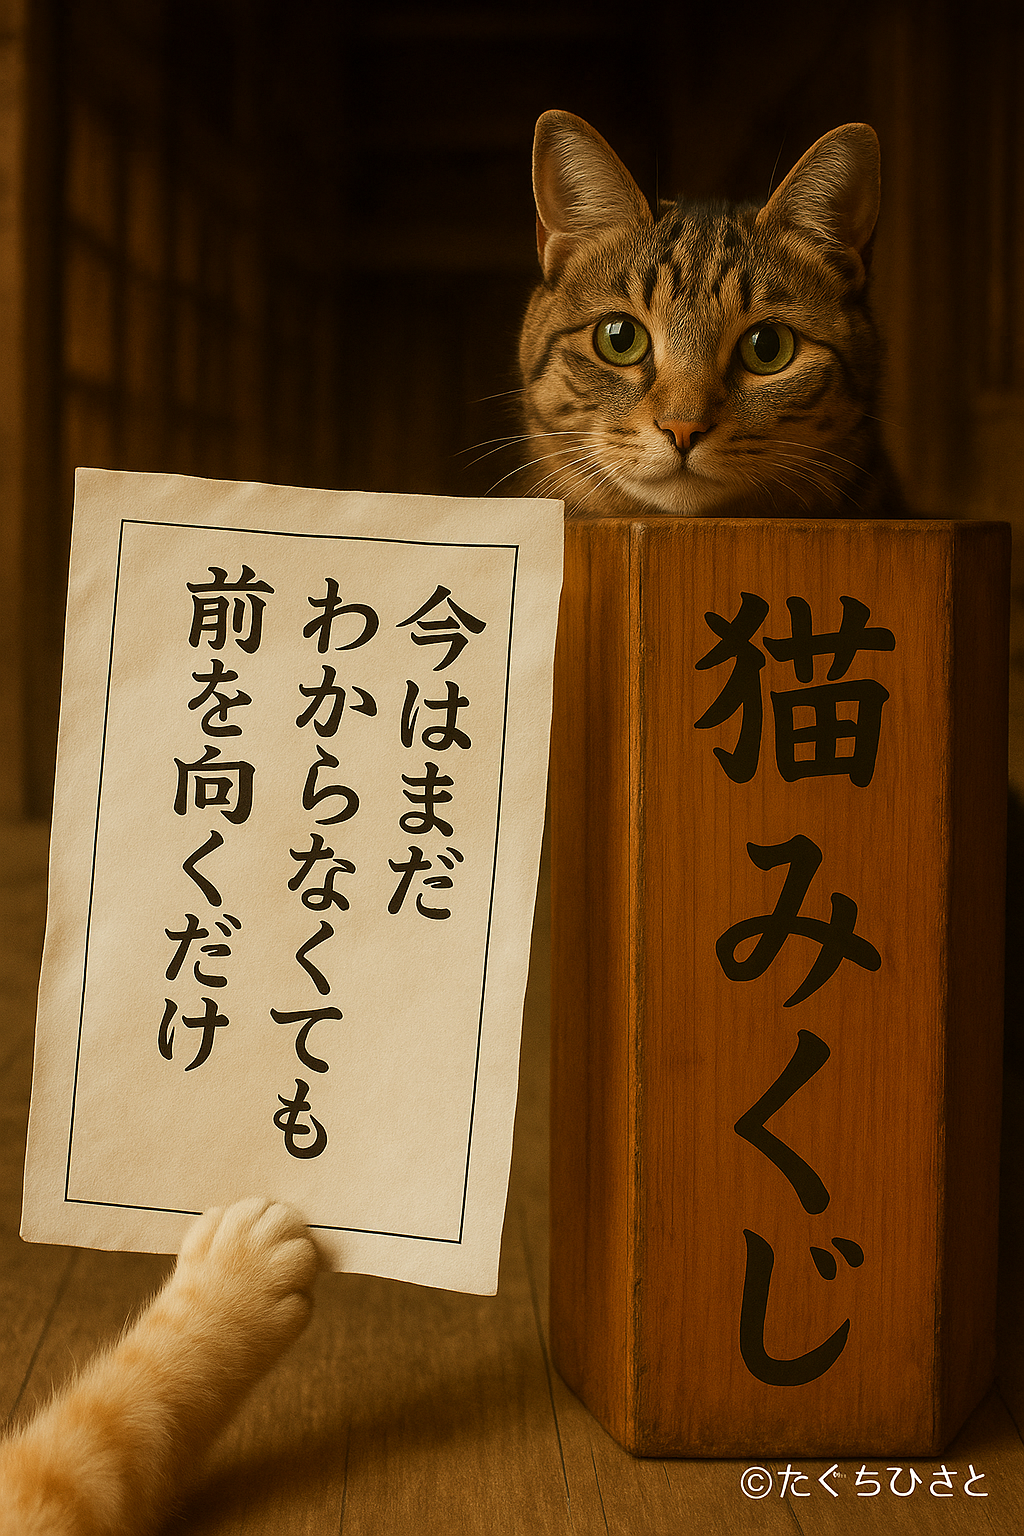 今はまだ
わからなくても
前を向くだけ
猫みくじ
©たぐちひさと